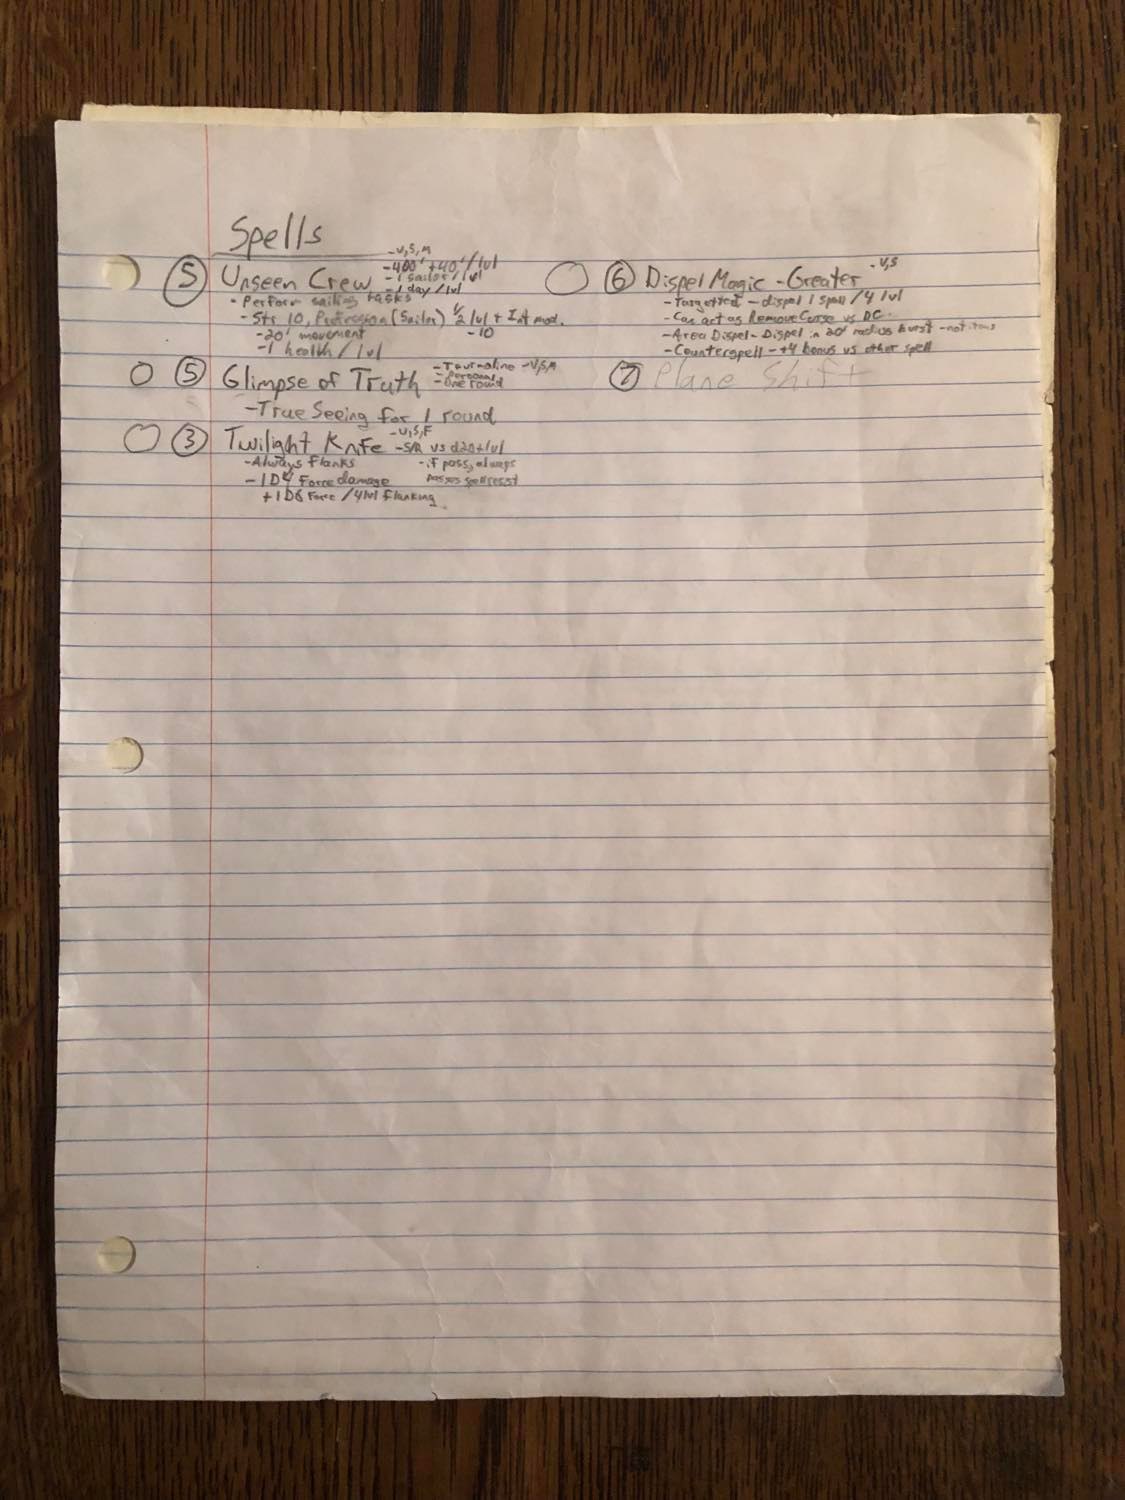 Spells
-V,S,M
-400'+40'/lvl
5 Unseen Crew -1 sailor/lvl
-1 day/lvl
-Perform sailing tasks
-Str 10, Profession (Sailor) 1/2 lvl + Int mod.
-20' movement -10
-1 health/lvl
5 Glimpse of Truth -Tourmaline -V,S,M
-Personal
-One round
-True Seeing for 1 round
-V,S,F
3 Twilight Knife -S/R vs d20+lvl
-Always flanks -if pass, always
-1D4 Force damage passes spell resist
+1D6 Force /4lvl flanking
-V,S
6 Dispel Magic -Greater
-Targetted -dispel 1 spell/4 lvl
-Can act as Remove Curse vs DC
-Area Dispel-Dispel in 20' radius burst -not items
-Counterspell -+4 bonus vs other spell
7 Plane Shift